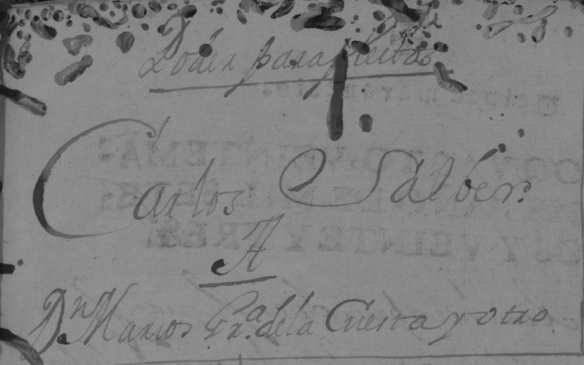 Poder para pleitos
Carlos Salber.
A
Dn Marcos Gra. de la Cuesta y otro.